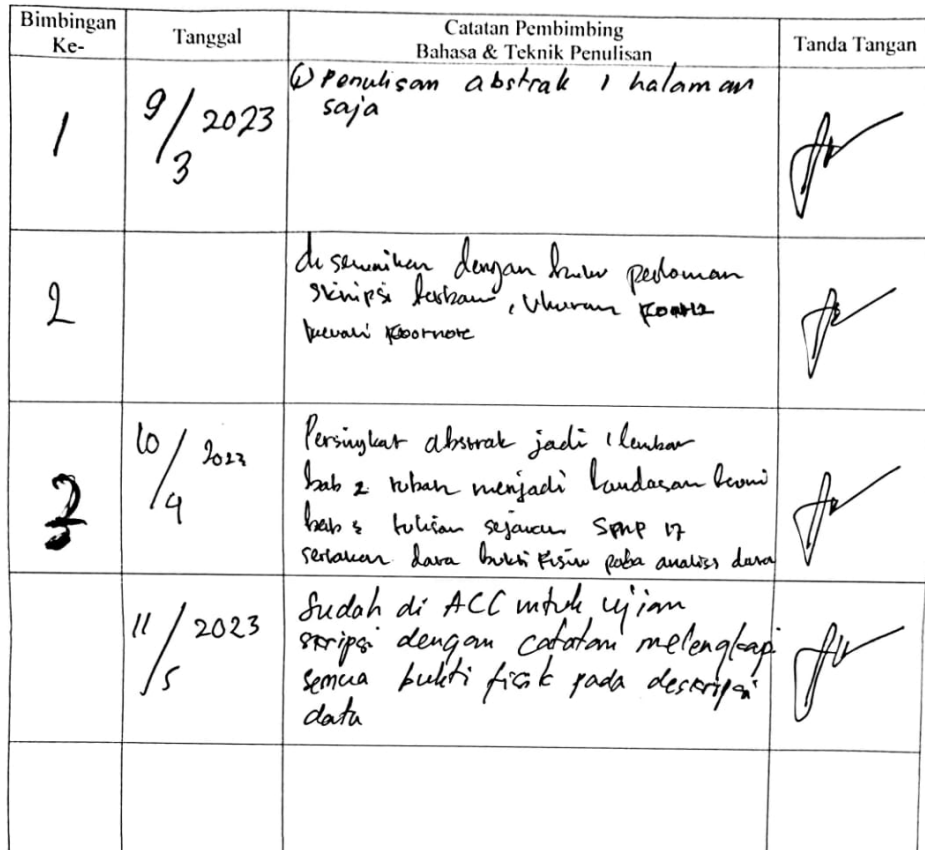 Bimbingan Ke-
Tanggal
Catatan Pembimbing
Bahasa & Teknik Penulisan
Tanda Tangan
1
9/3 2023
① Penulisan abstrak 1 halaman
saja
2
disesuaikan dengan buku pedoman
skripsi terbaru, Ukuran
kecuali Footnote
3
10/4 2023
Persingkat abstrak jadi 1 lembar
bab 2 rubah menjadi landasan teori
bab 3 tulisan sejarah SPMP 17
data bukti Fisik pada analisis data
11/5 2023
Sudah di ACC untuk ujian
skripsi dengan catatan melengkapi
semua bukti fisik pada deskripsi
data